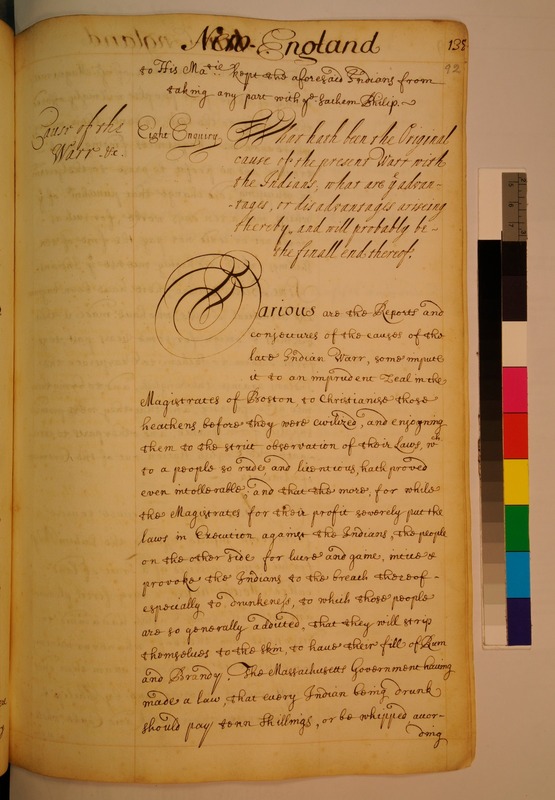 New-England
138
92
to His Matie kept the aforesaid Indians from
taking any part with ye Sachem Philip.~
Cause of the
Warr &c.
Eight Enquiry.
What hath been the Original
cause of the present Warr with
the Indians, what are ye advan-
-tages, or disadvantages ariseing
thereby, and will probably be-
the finall end thereof?
Various are the Reports and
conjectures of the causes of the
late Indian Warr, some impute
it to an imprudent Zeal in the
Magistrates of Boston, to Christianise those
heathens, before they were civilized, and enjoyning
them to the strict observation of their Laws, wch
to a people so rude, and licentious, hath proved
even intollerable, and that the more, for while
the Magistrates for their profit severely put the
laws in Execution against the Indians, the people
on the other side for lucre and game, intice &
provoke the Indians to the breach thereof-
especially to drunkeness, to which those people
are so generally addicted, that they will strip
themselves to the skin, to have their fill of Rum
and Brandy. The Massachusetts Government having
made a law, that every Indian being drunk
should pay tenn Shillings, or be whipped accor-
ding